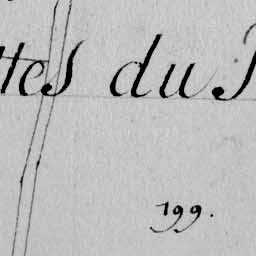 ttes du
199.